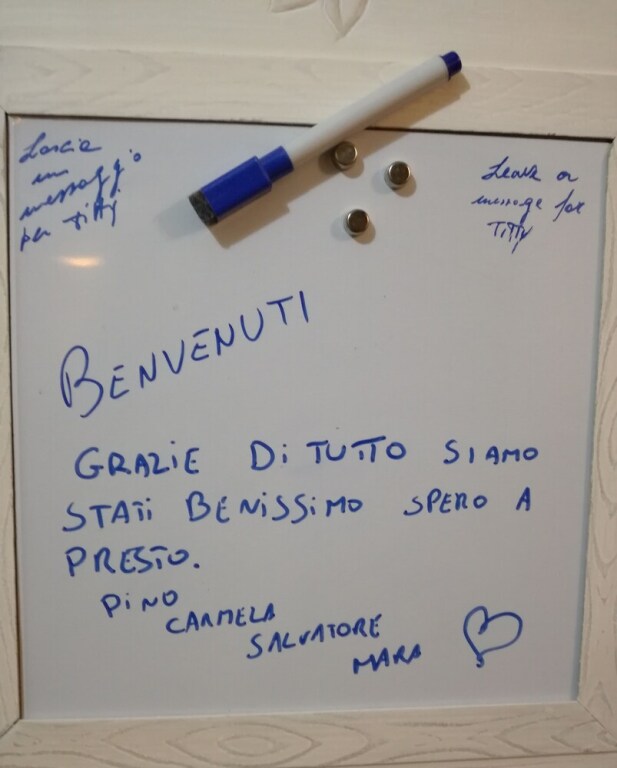 Lascia
un
messaggio
per Titty
Leave a
message for
TITTY
BENVENUTI
GRAZIE DI TUTTO SIAMO
STATI BENISSIMO SPERO A
PRESTO.
PINO
CARMELA
SALVATORE
MARA